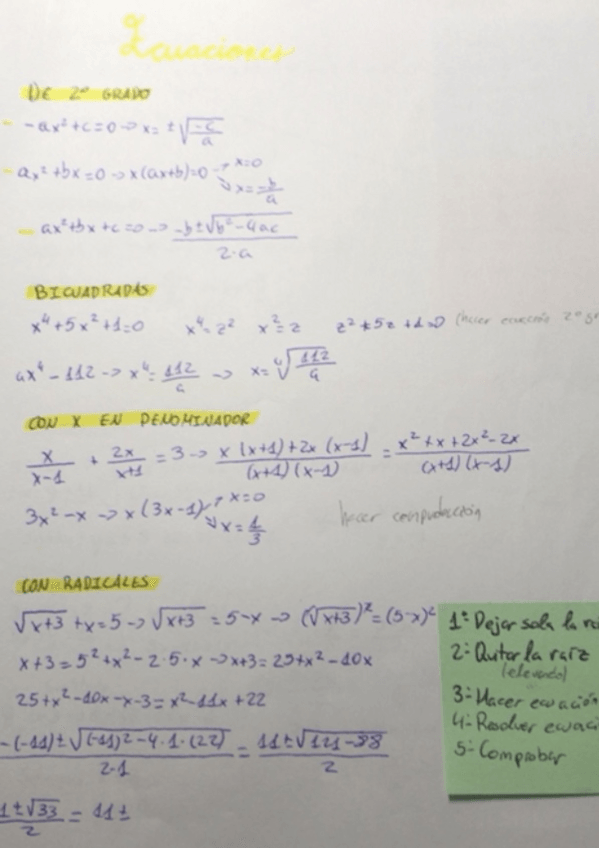 Ecuaciones
DE 2º GRADO
- -ax²+c=0 -> x= ±√(-c/a)
- ax²+bx=0 -> x(ax+b)=0 ↗ x=0
↘ x=-b/a
- ax²+bx+c=0 -> (-b±√(b²-4ac))/(2·a)
BICUADRADAS
x⁴+5x²+1=0 x⁴=z² x²=z z²+5z+1=0 (hacer ecuación 2º
ax⁴-112 -> x⁴=112/a -> x=⁴√(112/a)
CON X EN DENOMINADOR
x/(x-1) + 2x/(x+1) = 3 -> (x(x+1)+2x(x-1))/((x+1)(x-1)) = (x²+x+2x²-2x)/((x+1)(x-1))
3x²-x -> x(3x-1) ↗ x=0
↘ x=1/3 hacer comprobación
CON RADICALES
√(x+3) +x=5 -> √(x+3) =5-x -> (√(x+3))²=(5-x)²
x+3=5²+x²-2·5·x -> x+3=25+x²-10x
25+x²-10x-x-3=x²-11x+22
(-(-11)±√((-11)²-4·1·(22)))/(2·1) = (11±√(121-88))/2
1±√33/2 = 11±
1º Dejar sola la
2º Quitar la raíz
(elevando)
3º Hacer
4º Resolver
5º Comprobar